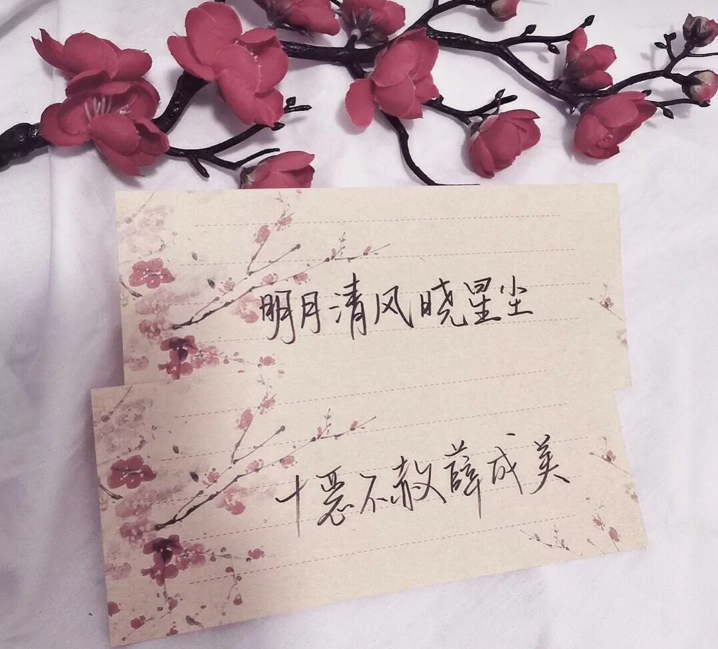 明月清风晓星尘
十恶不赦薛成美